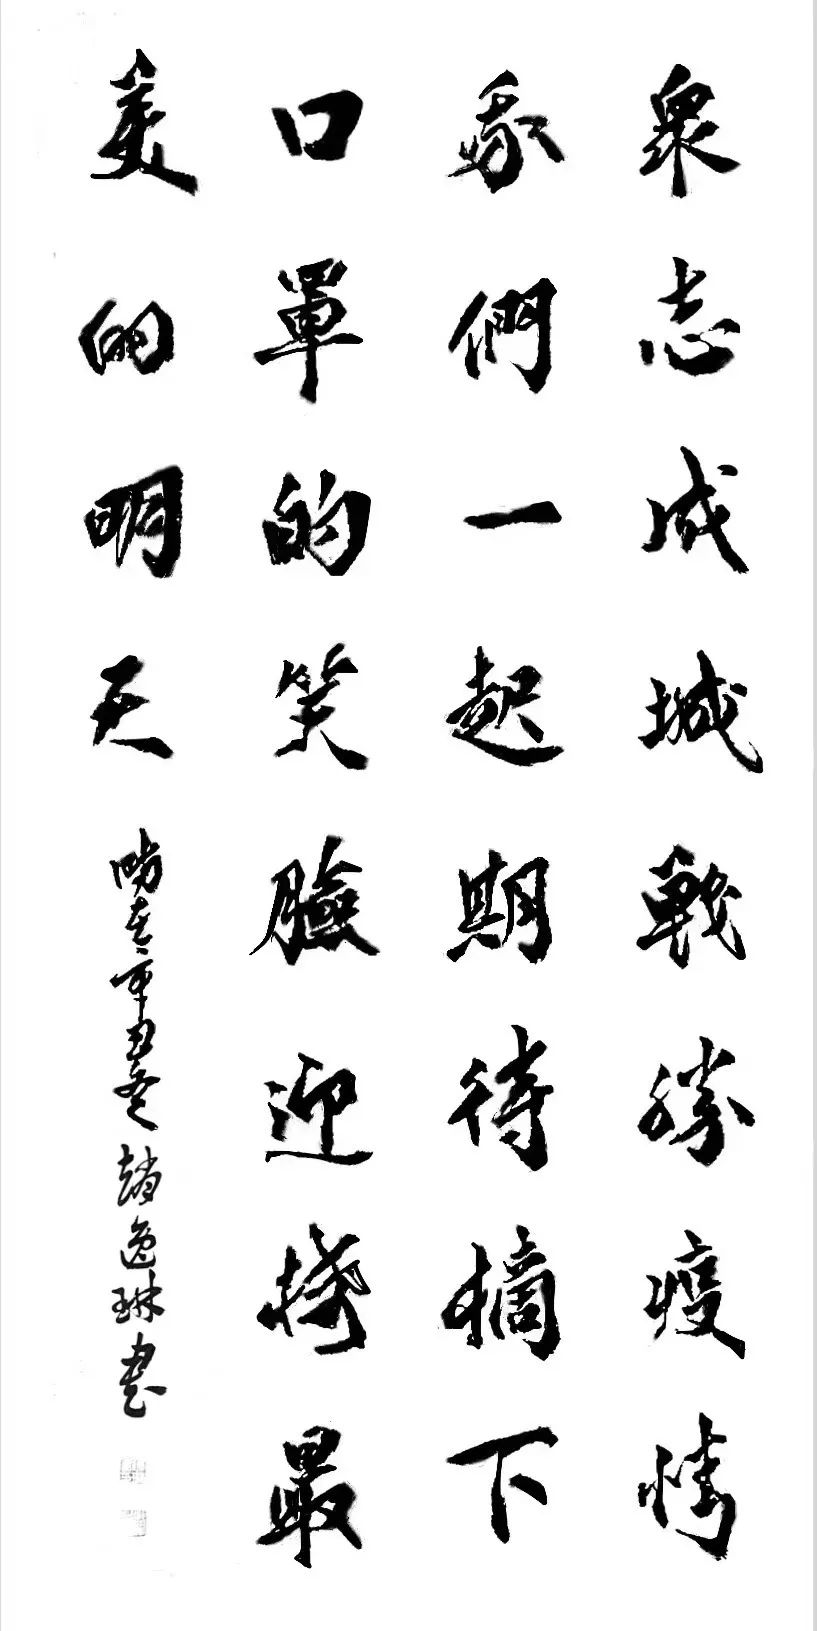 衆志成城戰勝疫情
我們一起期待摘下
口罩的笑臉迎接最
美的明天
辛丑 趙逸琳書